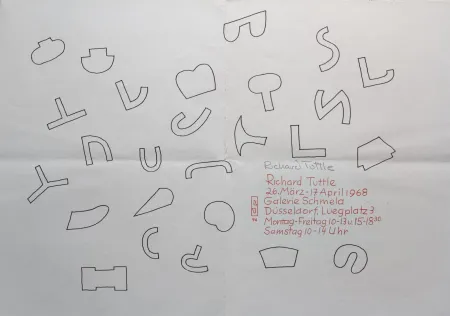 Richard Tuttle
Richard Tuttle
26. März-17 April 1968
Galerie Schmela
Düsseldorf, Luegplatz 3
Montag-Freitag 10-13 u. 15-18³⁰
Samstag 10-14 Uhr